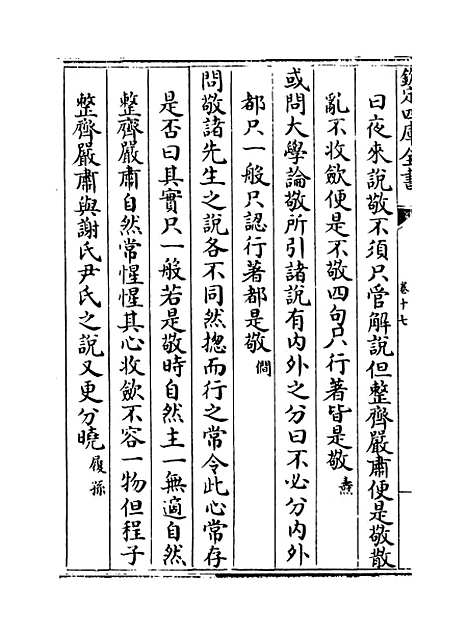 欽定四庫全書
卷十七
曰夜來說敬不須只管解說但整齊嚴肅便是敬散
亂不收歛便是不敬四句只行著皆是敬 燾
或問大學論敬所引諸說有内外之分曰不必分内外
都只一般只認行著都是敬 僩
問敬諸先生之說各不同然揔而行之常令此心常存
是否曰其實只一般若是敬時自然主一無適自然
整齊嚴肅自然常惺惺其心收歛不容一物但程子
整齊嚴肅與謝氏尹氏之說又更分曉 履孫